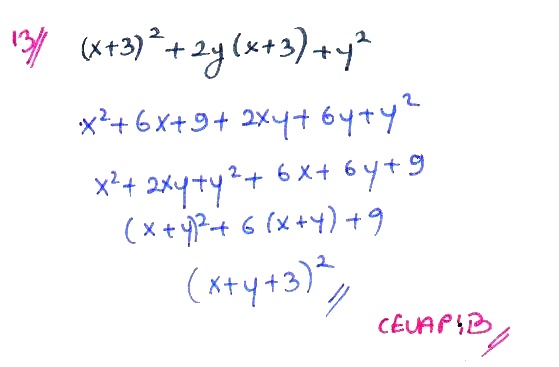 13// (x+3)² + 2y(x+3) + y²
x² + 6x + 9 + 2xy + 6y + y²
x² + 2xy + y² + 6x + 6y + 9
(x+y)² + 6(x+y) + 9
(x+y+3)² //
CEVAP: B //